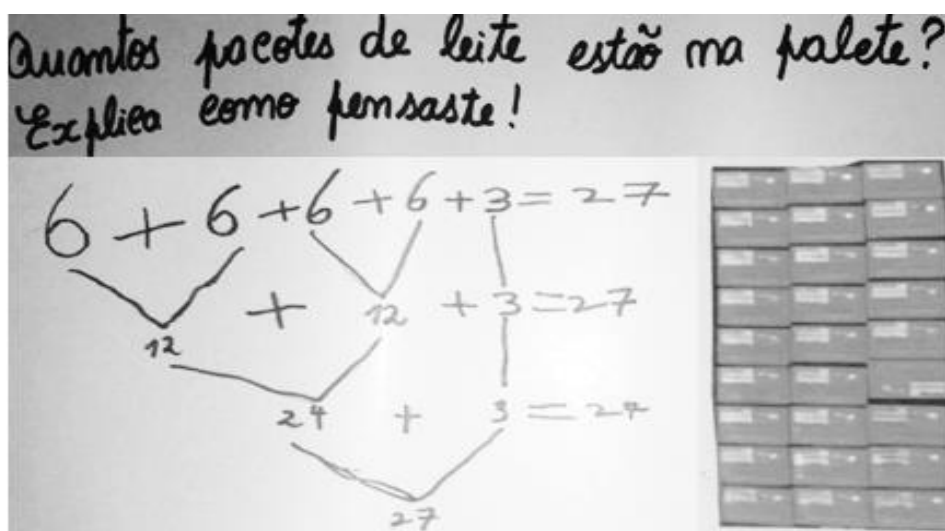 Quantos pacotes de leite estão na palete?
Explica como pensaste!
6 + 6 + 6 + 6 + 3 = 27
12 + 12 + 3 = 27
24 + 3 = 27
27